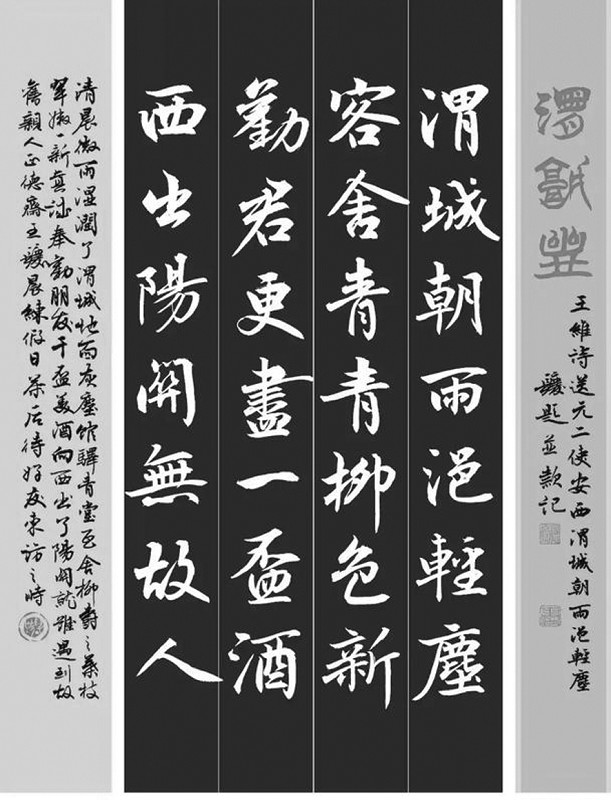 王維詩送元二使安西渭城朝雨浥輕塵
題並款記
渭城朝雨浥輕塵
客舍青青柳色新
勸君更盡一盃酒
西出陽關無故人
清晨微雨湿潤了渭城地面灰塵馆驛青堂瓦舍柳樹之葉枝
翠嫩一新真誠奉勸朋友干盃美酒向西出了陽関就難遇到故
舊親人正德齋王晨練假日茶后待好友来訪之時